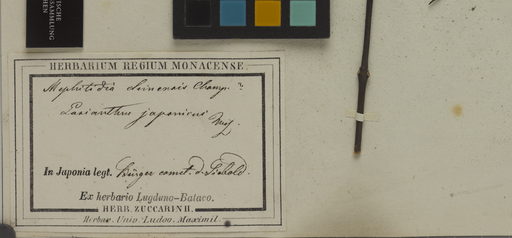 ISCHE
SAMMLUNG
HEN
HERBARIUM REGIUM MONACENSE.
Mephitidia chinensis Champ. ?
Lasianthus japonicus
Miq.
In Japonia legt. Bürger comet. d. Siebold.
Ex herbario Lugduno-Batavo.
HERB. ZUCCARINII.
Herbar. Univ. Ludov. Maximil.